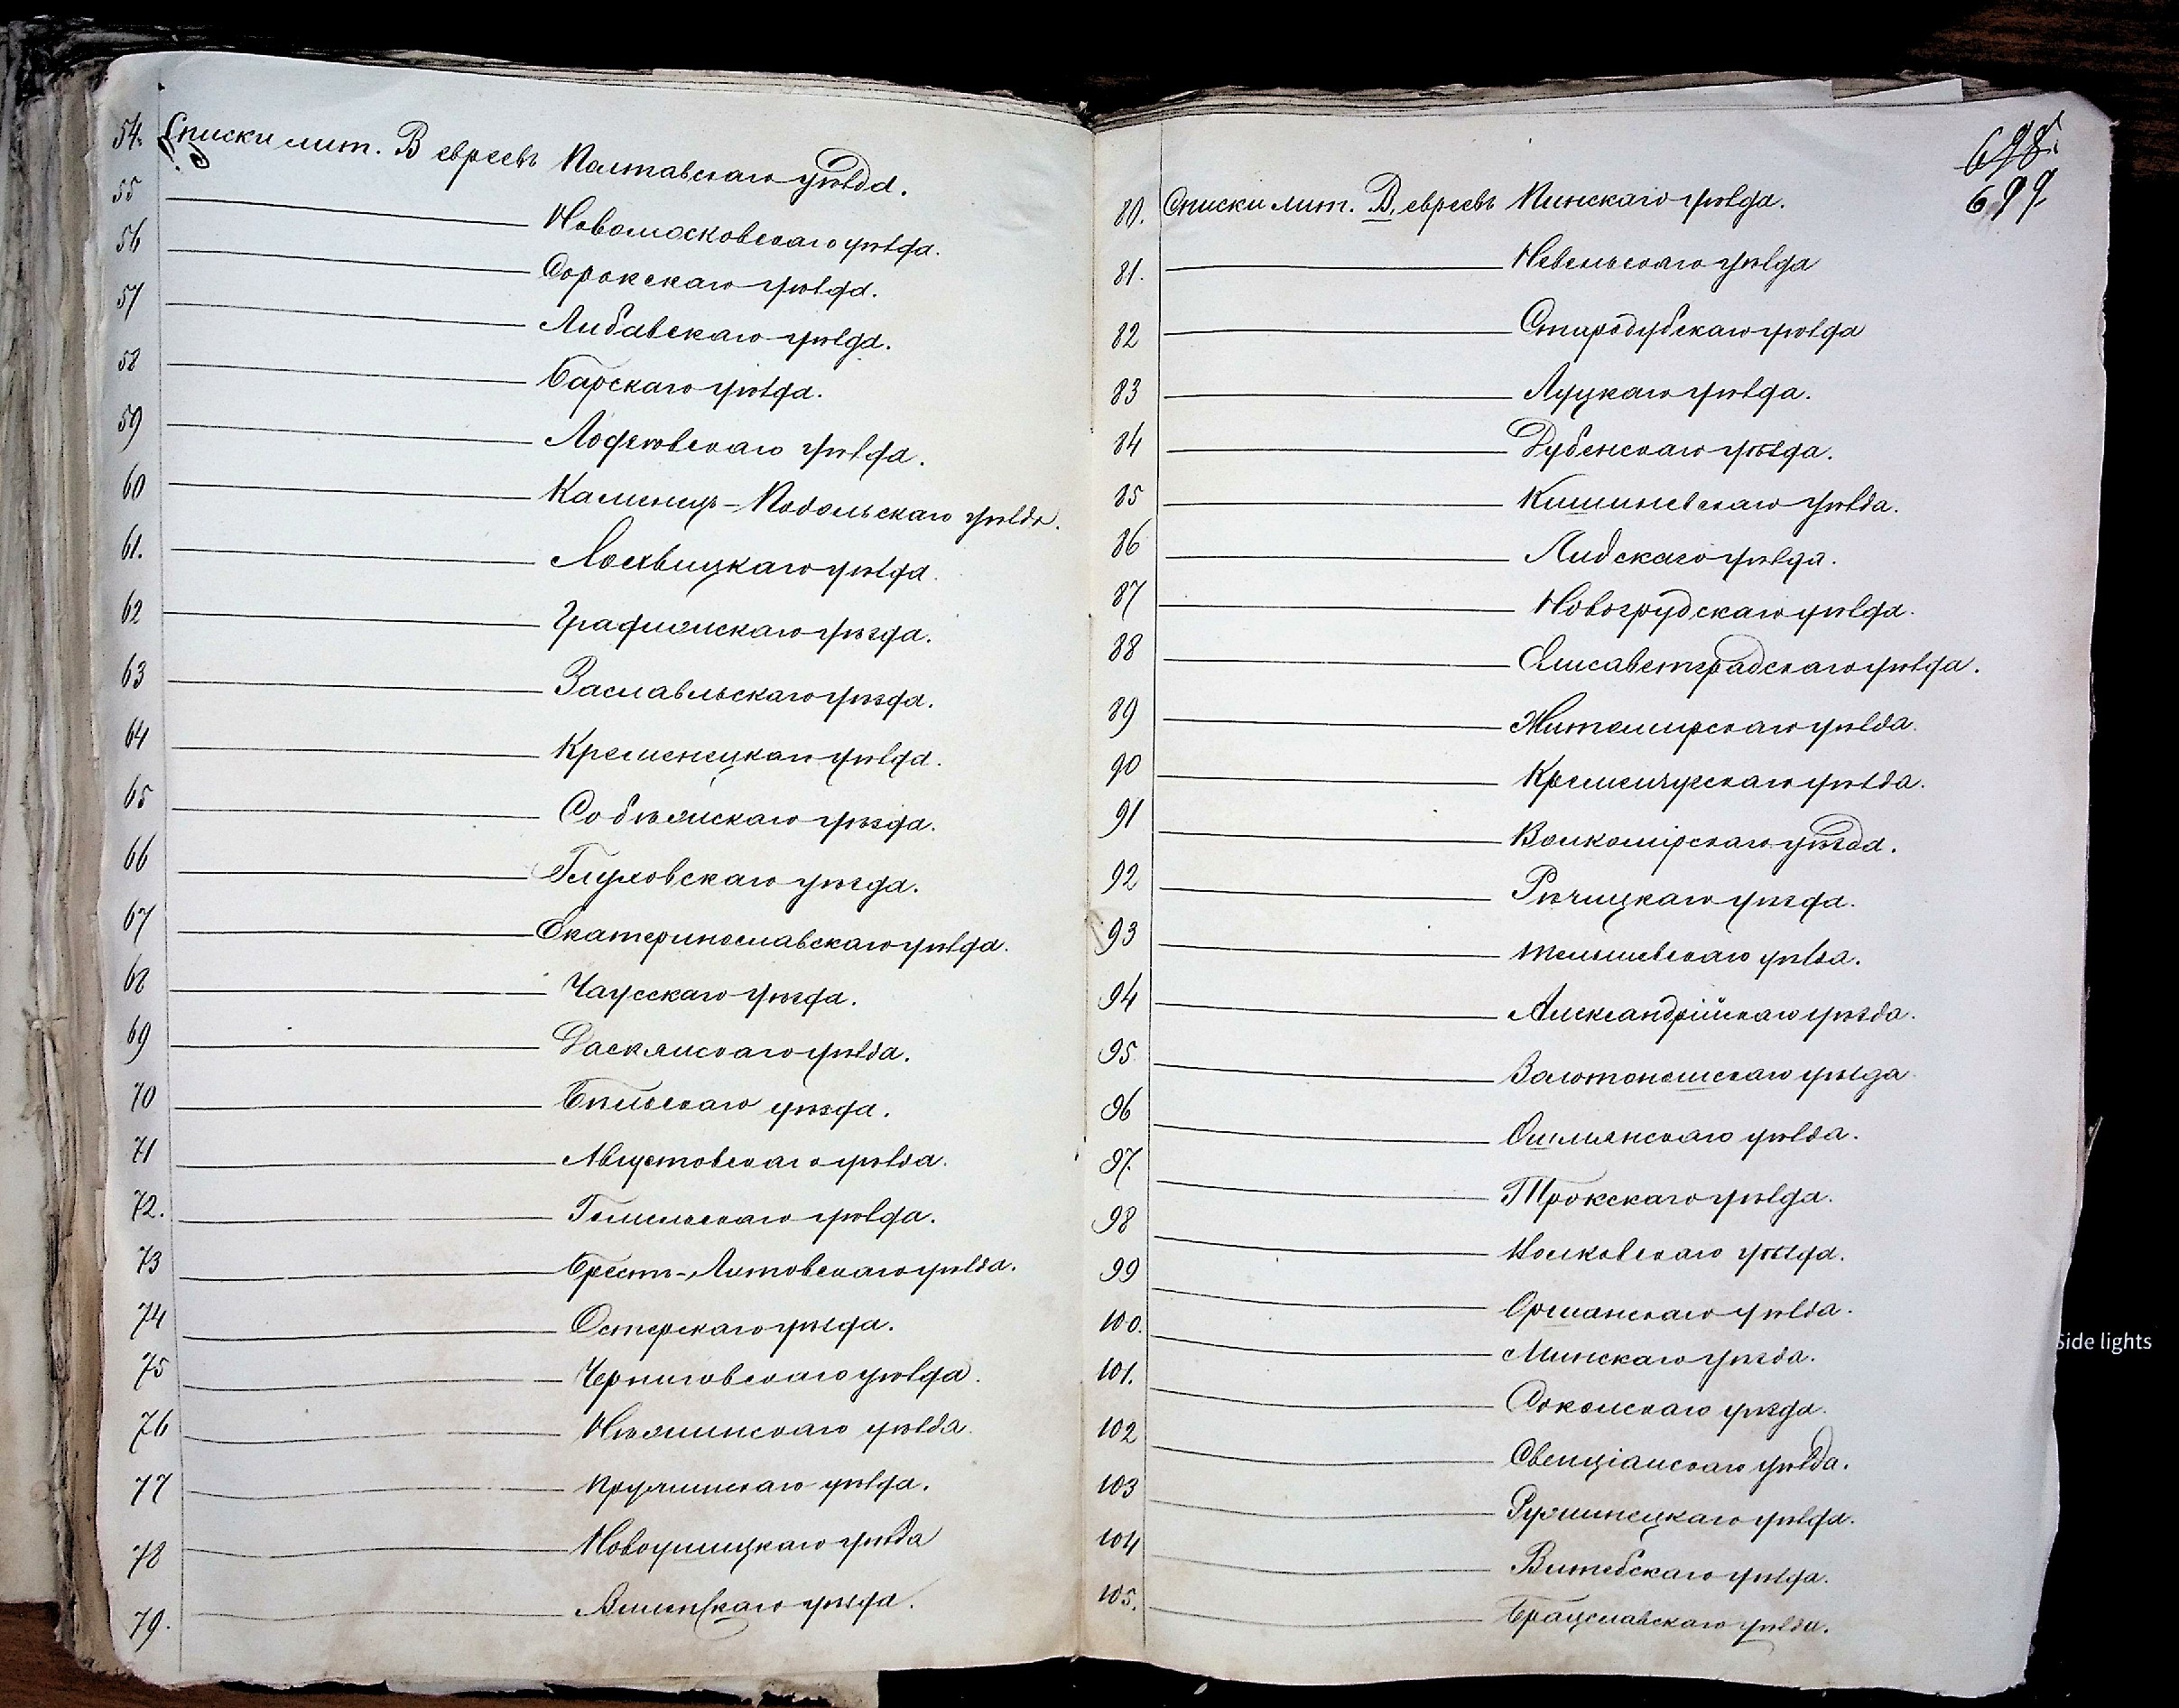 54. Списки лит. В евреевъ Полтавскаго уѣзда.
55 Новомосковскаго уѣзда.
56 Сорокскаго уѣзда.
57 Либавскаго уѣзда.
58 Барскаго уѣзда.
59 Лодзювскаго уѣзда.
60 Каменец-Подольскаго уѣзда.
61. Лохвицкаго уѣзда.
62 уѣзда.
63 Заславльскаго уѣзда.
64 Кременецкаго уѣзда.
65 уѣзда.
66 Глуховскаго уѣзда.
67 Екатеринославскаго уѣзда.
68 Чаусскаго уѣзда.
69 уѣзда.
70 Бѣльскаго уѣзда.
71 Августовскаго уѣзда.
72. Гомельскаго уѣзда.
73 Брестъ-Литовскаго уѣзда.
74 Остерскаго уѣзда.
75 Черниговскаго уѣзда.
76 Нѣжинскаго уѣзда.
77 Пружинскаго уѣзда.
78 Новоушицкаго уѣзда
79. Виленскаго уѣзда.
698.
699
80. Списки лит. В. евреевъ Пинскаго уѣзда.
81. Невельскаго уѣзда
82 Стародубскаго уѣзда
83 Луцкаго уѣзда.
84 Дубенскаго уѣзда.
85 Кишиневскаго уѣзда.
86 Лидскаго уѣзда.
87 Новогрудскаго уѣзда.
88 Елисаветградскаго уѣзда.
89 Житомирскаго уѣзда.
90 Кременчугскаго уѣзда.
91 Вилкомірскаго уѣзда.
92 Рѣчицкаго уѣзда.
93 Тельшевскаго уѣзда.
94 Александрійскаго уѣзда.
95 Золотоношскаго уѣзда
96 Ошмянскаго уѣзда.
97. Трокскаго уѣзда.
98 уѣзда.
99 Оршанскаго уѣзда.
100. Минскаго уѣзда.
101. Сокольскаго уѣзда.
102 Свенціанскаго уѣзда.
103 уѣзда.
104 Витебскаго уѣзда.
105. Брацславскаго уѣзда.
Side lights